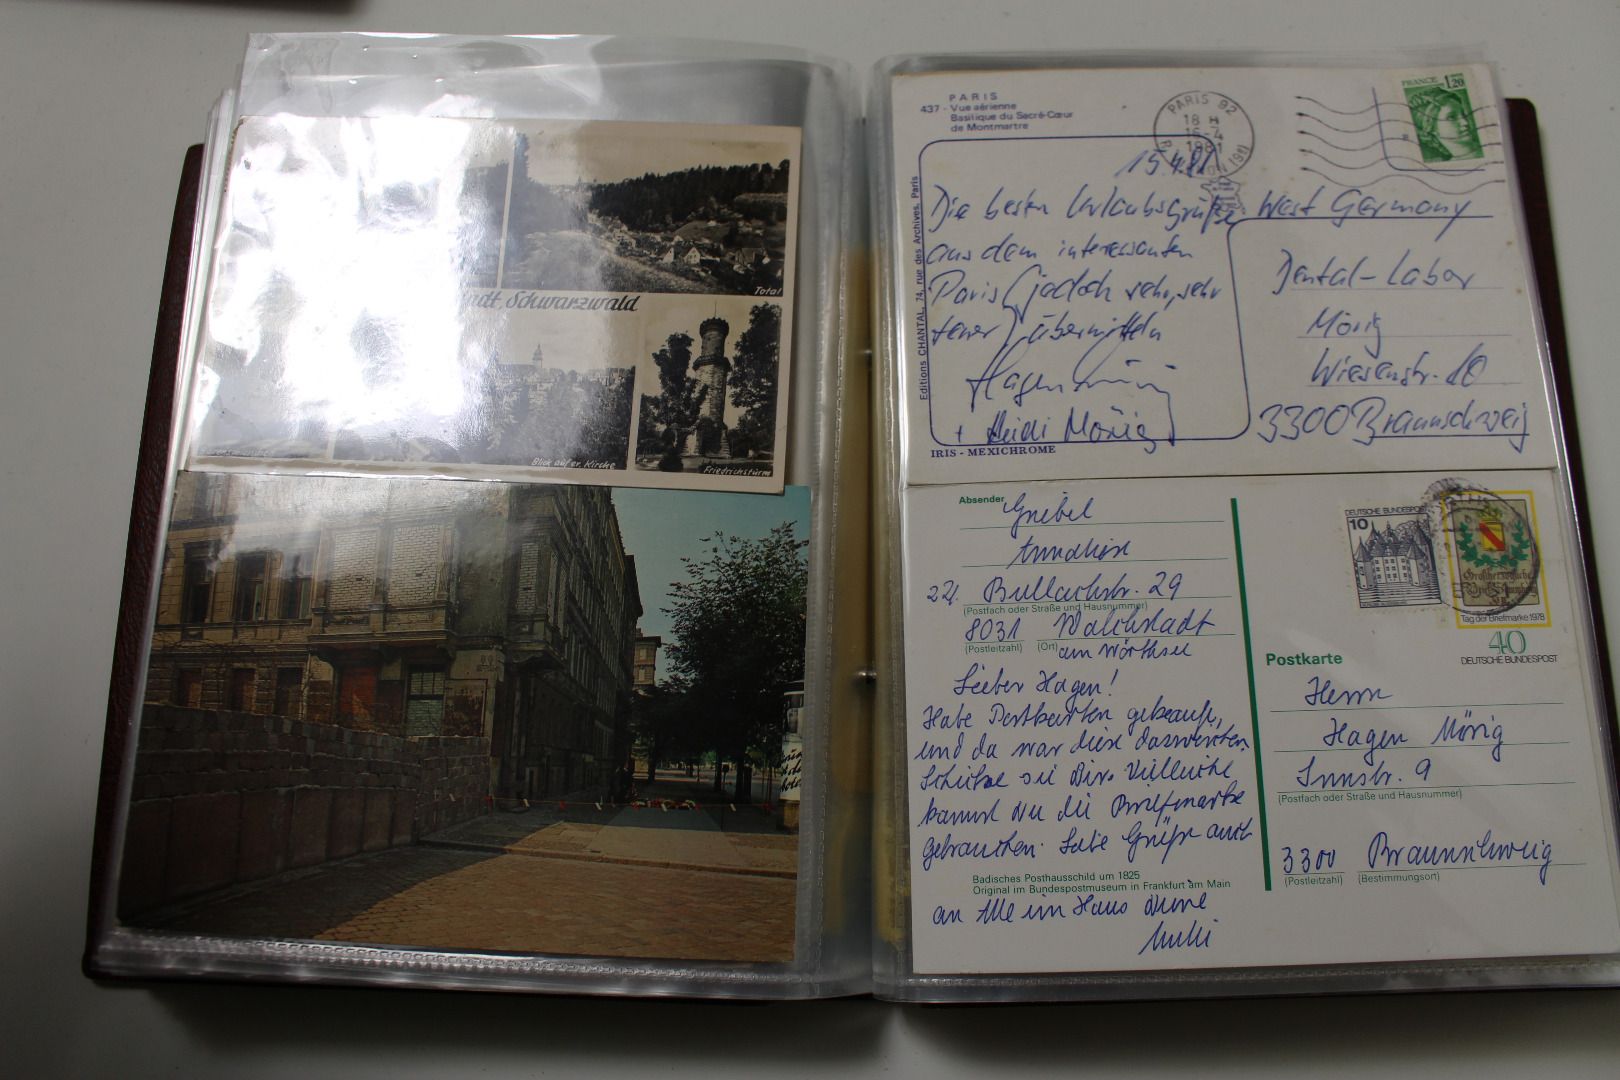 Total
adt, Schwarzwald
Blick auf er. Kirche
Friedrichsturm
PARIS
437 - Vue aérienne
Basilique du Sacré-Cœur
de Montmartre
PARIS 92
18 H
16-4
1981
FRANCE 1,20
Editions CHANTAL, 74, rue des Archives, Paris
15.4.81
Die besten Urlaubsgrüße
aus dem interessanten
Paris (jedoch sehr, sehr
teuer) übermitteln
Hagen
+ Heidi Mörig
IRIS - MEXICHROME
West Germany
Dental-Labor
Mörig
Wiesenstr. 10
3300 Braunschweig
Absender
Griebel
Annaliese
Bullachstr. 29
(Postfach oder Straße und Hausnummer)
8031 Walchstadt
(Postleitzahl) (Ort) am Wörthsee
Lieber Hagen!
Habe Postkarten gekauft,
und da war diese dazwischen.
Schicke sie Dir. Vielleicht
kannst du die Briefmarke
gebrauchen. Liebe Grüße auch
Badisches Posthausschild um 1825
Original im Bundespostmuseum in Frankfurt am Main
an Alle im Haus Deine
DEUTSCHE BUNDESPOST
10
Großherzogliche
Tag der Briefmarke 1978
40
DEUTSCHE BUNDESPOST
Postkarte
Herrn
Hagen Mörig
Innstr. 9
(Postfach oder Straße und Hausnummer)
3300 Braunschweig
(Postleitzahl) (Bestimmungsort)